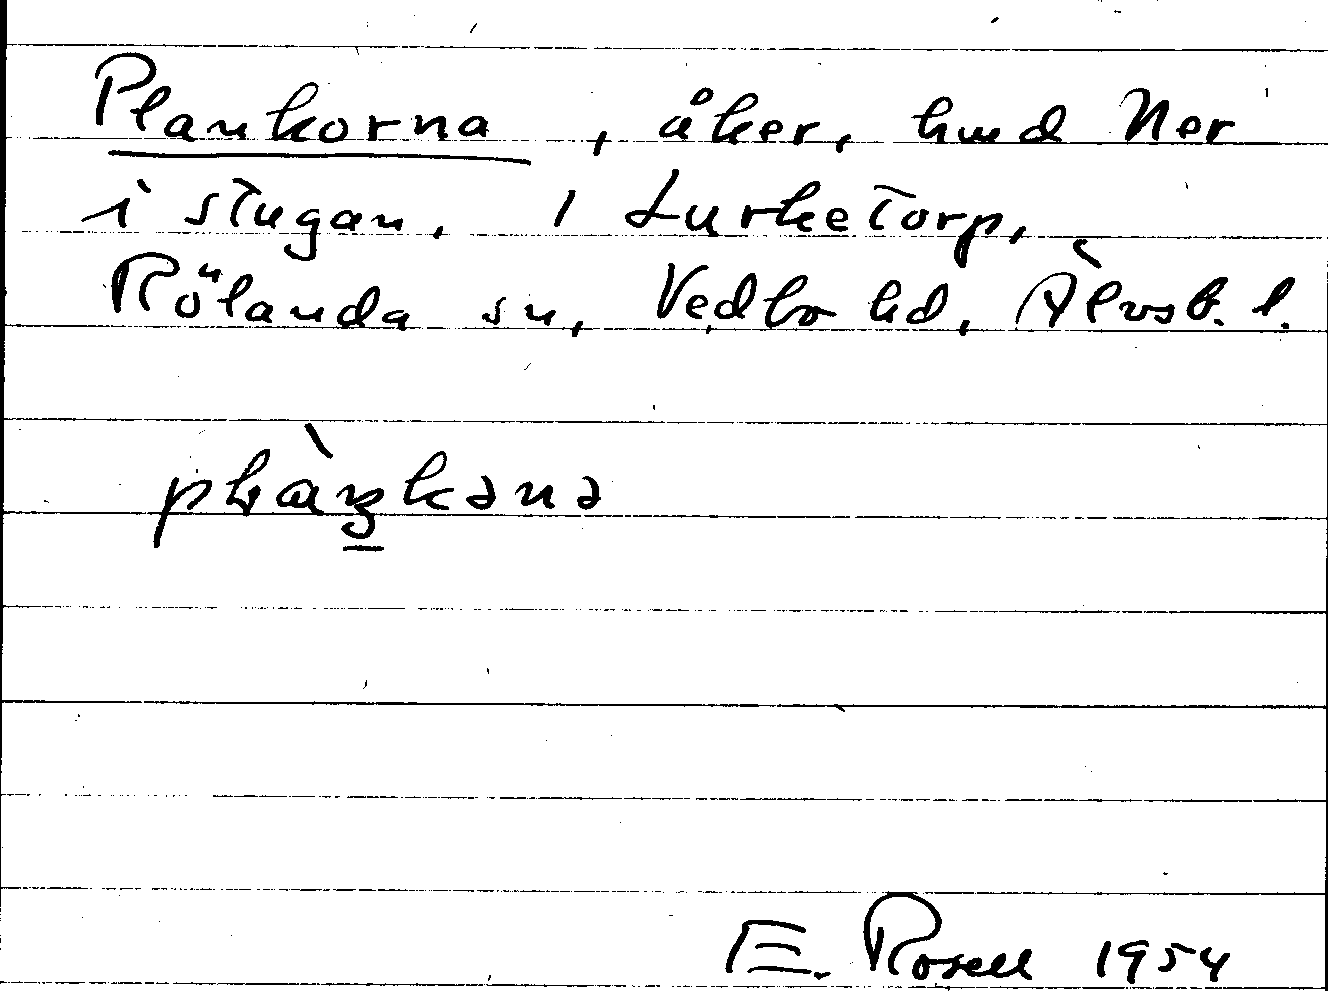 Plankorna, åker, hmd Ner
i stugan. 1 Lurketorp,
Rölanda sn, Vedbo hd, Älvsb. l.
E. Rosell 1954